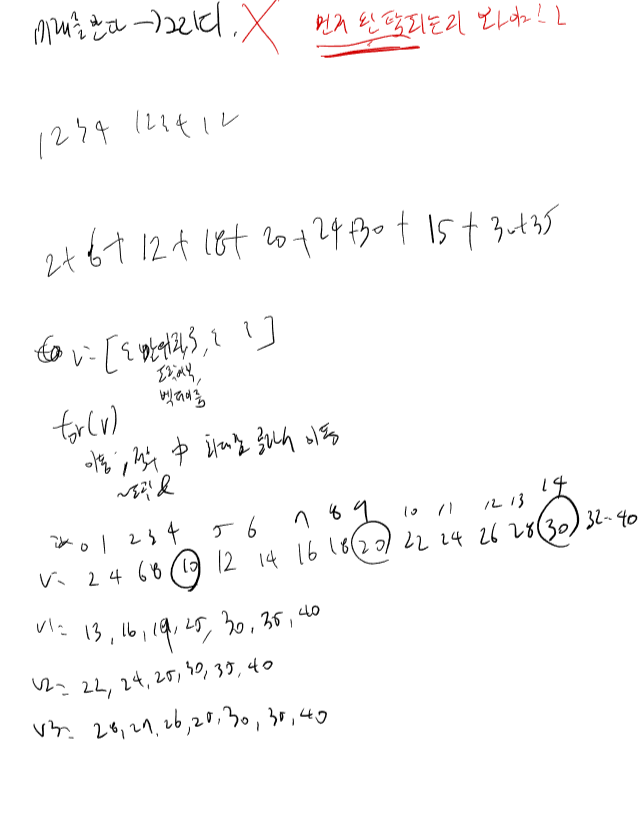 미래를 본다 → 그리디. X 먼저 된 탁피는리 봐야!!
1234 1234 12
2+6+12+18+20+24+30+15+30+35
v= [{ }, { }]
벡터이름
for(v)
이동, 중 최대로 골라서 이동
0 1 2 3 4 5 6 7 8 9 10 11 12 13 14
v= 2 4 6 8 10 12 14 16 18 20 22 24 26 28 30 32-40
v1= 13, 16, 19, 25, 30, 35, 40
v2= 22, 24, 25, 30, 35, 40
v3= 28, 27, 26, 25, 30, 35, 40